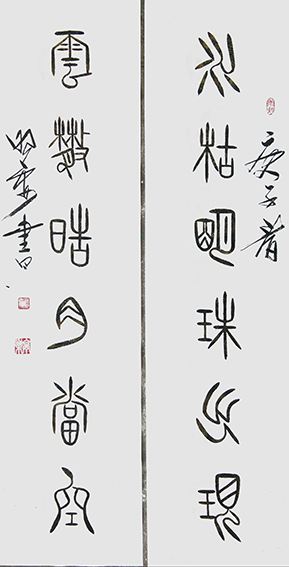 庚子春
水枯明珠出現
雲散晧月當空
書